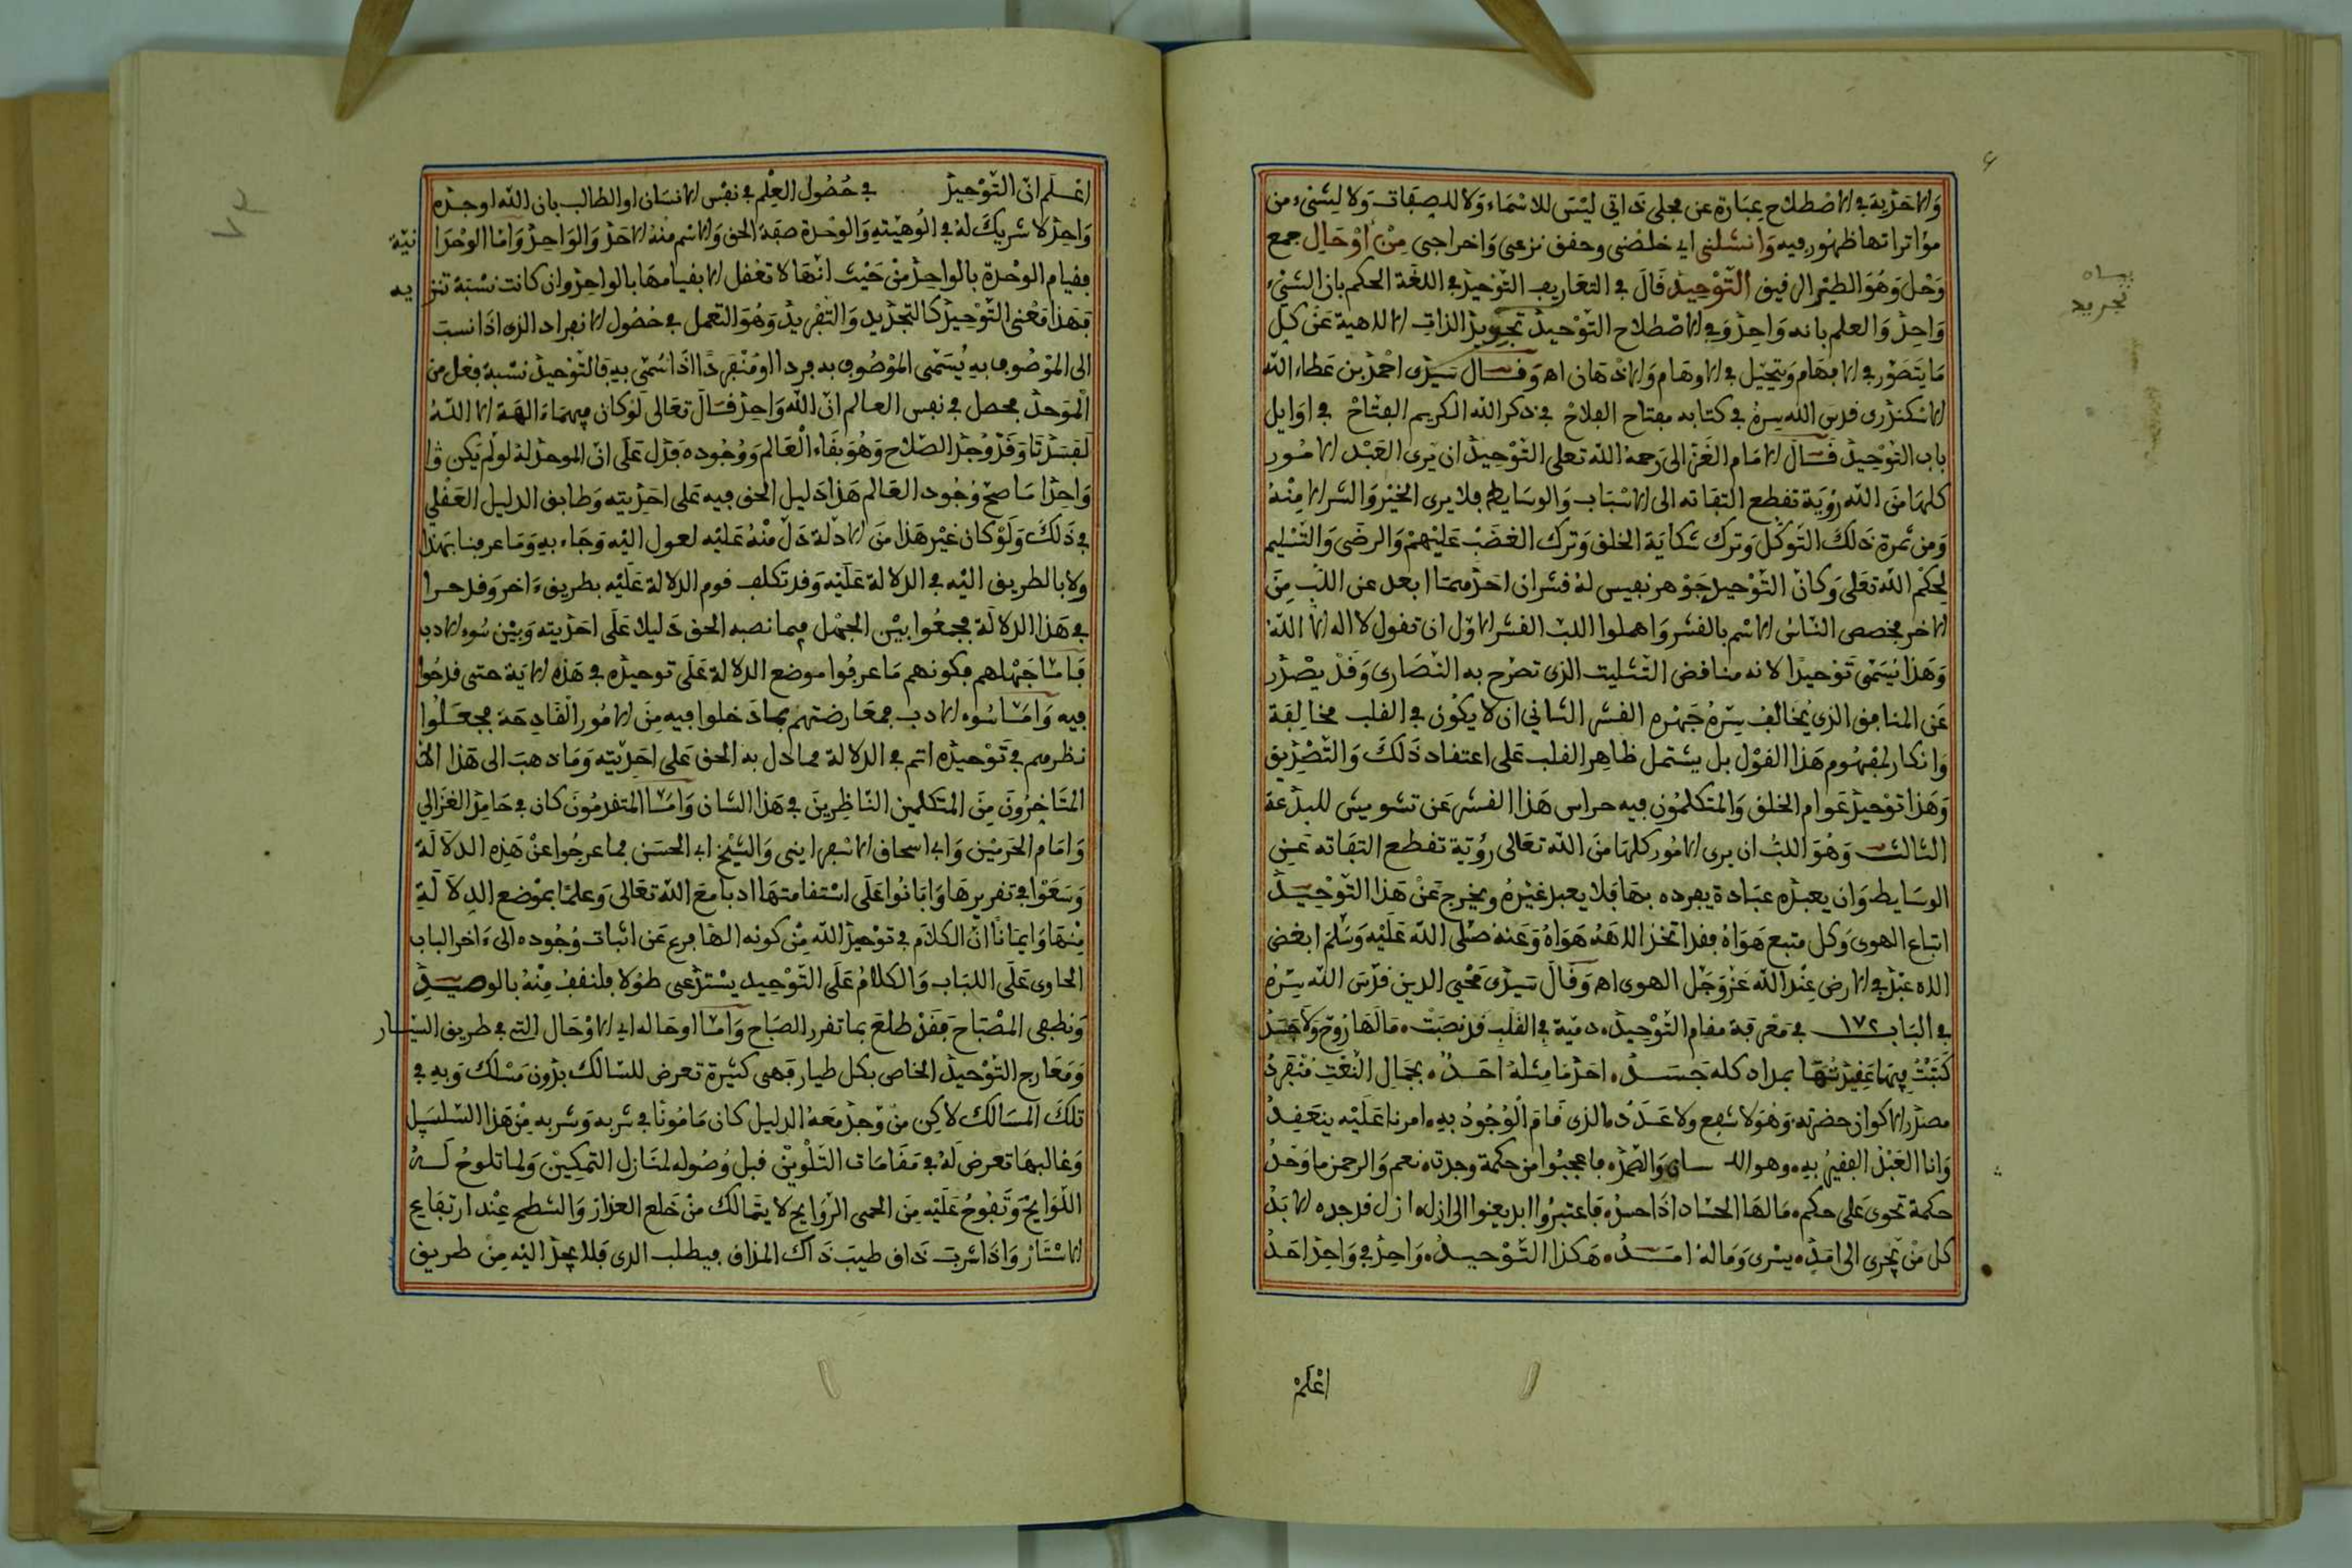 والاحدية في الاصطلاح عبارة عن مجلى ذاتي ليس للاسماء ولا للصفات ولا لشيء من
مؤثراتها ظهور فيه وانشلني اي خلصني وحقق نزعي واخراجي من اوحال جمع
وحل وهو الطين الرقيق التوحيد قال في التعاريف التوحيد في اللغة الحكم بان الشيء
واحد والعلم بانه واحد وفي الاصطلاح التوحيد تجريد الذات الالاهية عن كل
ما يتصور في الافهام ويتخيل في الاوهام والاذهان اه وقال سيدي احمد بن عطاء الله
الاسكندري قدس الله سره في كتابه مفتاح الفلاح في ذكر الله الكريم الفتاح في اوايل
باب التوحيد قال الامام الغزالي رحمه الله تعلى التوحيد ان يرى العبد الامور
كلها من الله رؤية تقطع التفاته الى الاسباب والوسايط فلا يرى الخير والشر الا منه
ومن ثمرة ذلك التوكل وترك شكاية الخلق وترك الغضب عليهم والرضى والتسليم
لحكم الله تعلى وكان التوحيد جوهر نفيس له قشران احدهما ابعد عن اللب من
الاخر فخصص الناس الاسم بالقشر واهملوا اللب القشر الاول ان تقول لا اله الا الله
وهذا يسمى توحيدا لانه مناقض التثليث الذي تصرح به النصارى وقد يصدر
عن المنافق الذي يخالف سره جهره القشر الثاني ان لا يكون في القلب مخالفة
وانكار لمفهوم هذا القول بل يشتمل ظاهر القلب على اعتقاد ذلك والتصديق
وهذا توحيد عوام الخلق والمتكلمون فيه حراس هذا القشر عن تشويش المبدعة
الثالث وهو اللب ان يرى الامور كلها من الله تعالى رؤية تقطع التفاته عن
الوسايط وان يعبده عبادة يفرده بها فلا يعبد غيره ويخرج عن هذا التوحيد
اتباع الهوى وكل متبع هواه فقد اتخذ الاهه هواه وعنه صلى الله عليه وسلم ابغض
الاه عبد في الارض عند الله عز وجل الهوى اه وقال سيدي محيي الدين قدس الله سره
في الباب ١٧٢ في معرفة مقام التوحيد دمية في القلب قد نصبت ما لها روح ولا جسد
كتبت فيها عقيدتها بمداد كله جسد احد ما مثله احد بجمال النعت منفرد
مصدر الاكوان حضرته وهو لا شفع ولا عدد ما الذي قام الوجود به امرنا عليه ينعقد
وانا العبد الفقير به وهو والصمد فاعجبوا من حكمة وجدت نعم والرحمن ما وجد
حكمة تحوي على حكم ما لها الحساد اذا حسدوا فاعتبروا ابديعنوا الى ازل ازل قد جده الابد
كل من يجري الى امد يسري وما له امد هكذا التوحيد واحد في واحد احد
اعلم
بيان
تجريد
اعلم ان التوحيد في حصول العلم في نفس الانسان او الطالب بان الله اوجده
واحد لا شريك له في الوهيته والوحدة صفة الحق والاسم منه الاحد والواحد واما الوحدانية
فقيام الوحدة بالواحد من حيث انها لا تعقل الا بقيامها بالواحد وان كانت نسبة تنزيه
فهذا معنى التوحيد كالتجريد والتفريد وهو التعمل في حصول الانفراد الذي اذا نسبت
الى الموصوف به يسمى الموصوف به فردا او منفردا اذا سمي به فالتوحيد نسبة فعل من
الموحد يحصل في نفس العالم ان الله واحد قال تعالى لو كان فيهماء الهة الا الله
لفسدتا وقد وجد الصلاح وهو بقاء العالم ووجوده فدل على ان الموجد له لو لم يكن وا
واحدا ما صح وجود العالم هذا دليل الحق فيه على احديته وطابق الدليل العقلي
في ذلك ولو كان غير هذا من الادلة دل منه عليه لعول اليه وجاء به وما عرفنا بهذا
ولا بالطريق اليه في الدلالة عليه وقد تكلف قوم الدلالة عليه بطريق ءاخر وقدحوا
في هذا الدلالة فجمعوا بين الجهل فيما نصبه الحق دليلا على احديته وبين سوء الادب
فاما جهلهم فكونهم ما عرفوا موضع الدلالة على توحيده في هذه الاية حتى قدحوا
فيه واما سوء الادب فمعارضتهم بما دخلوا فيه من الامور القادحة فجعلوا
نظرهم في توحيده اتم في الدلالة مما دل به الحق على احديته وما ذهب الى هذا الا
المتاخرون من المتكلمين الناظرين في هذا الشان واما المتقدمون كابي حامد الغزالي
وامام الحرمين وابي اسحاق الاسفرايني والشيخ ابي الحسن فما عرجوا عن هذه الدلالة
وسعوا في تقريرها وابانوا على استقامتها ادبا مع الله تعالى وعلما بموضع الدلالة
منها وايمانا ان الكلام في توحيد الله من كونه الها فرع عن اثبات وجوده الى ءاخر الباب
الحاوي على اللباب والكلام على التوحيد يستدعي طولا فلنقف منه بالوصيد
ونطفي المصباح فقد طلع بما تقرر الصباح واما اوحاله اي الاوحال التي في طريق السيار
ومعارج التوحيد الخاص بكل طيار فهي كثيرة تعرض للسالك بدون مسلك وبه في
تلك المسالك لاكن من وجد معه الدليل كان مامونا في شربه وشربه من هذا السلسبيل
وغالبها تعرض له في مقامات التلوين قبل وصوله لمنازل التمكين ولما تلوح له
اللوايح وتفوح عليه من الحمى الروايح لا يتمالك من خلع العذار والشطح عند ارتفاع
الاستار واذا شرب ذاق طيب ذاك المذاق فيطلب الري فلا يجد اليه من طريق